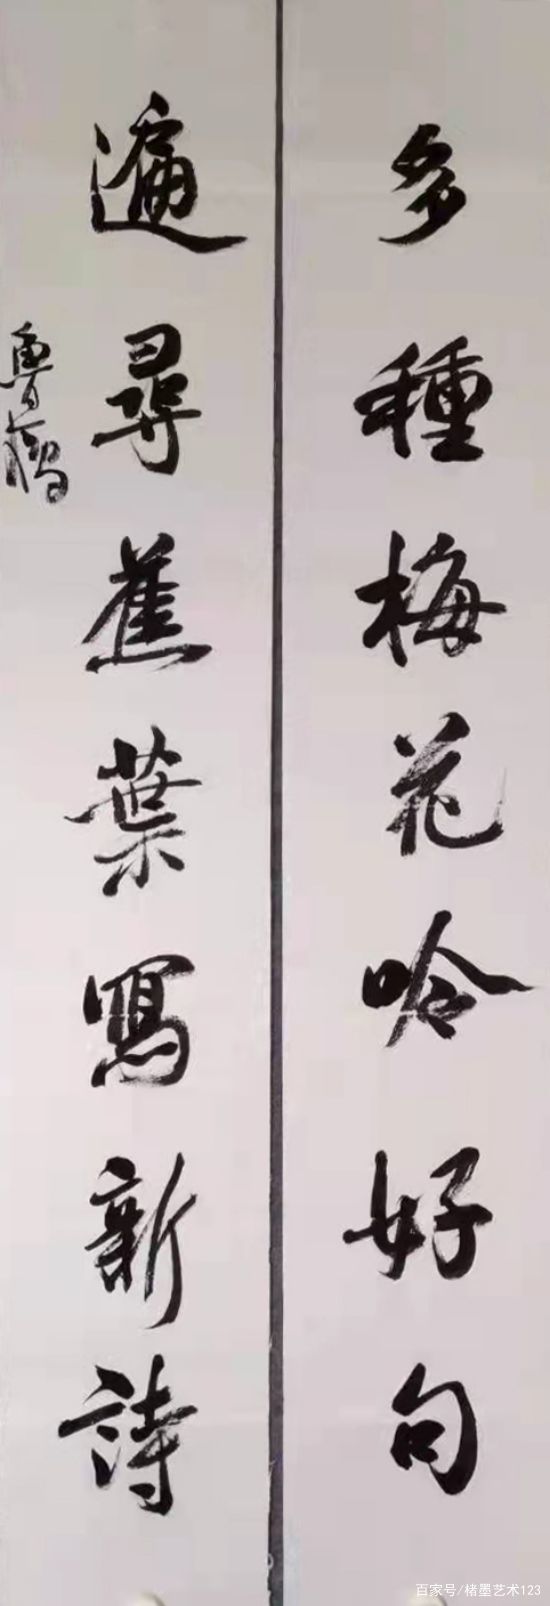 多種梅花吟好句
遍尋蕉葉寫新詩
魯鵬
百家号/楮墨艺术123